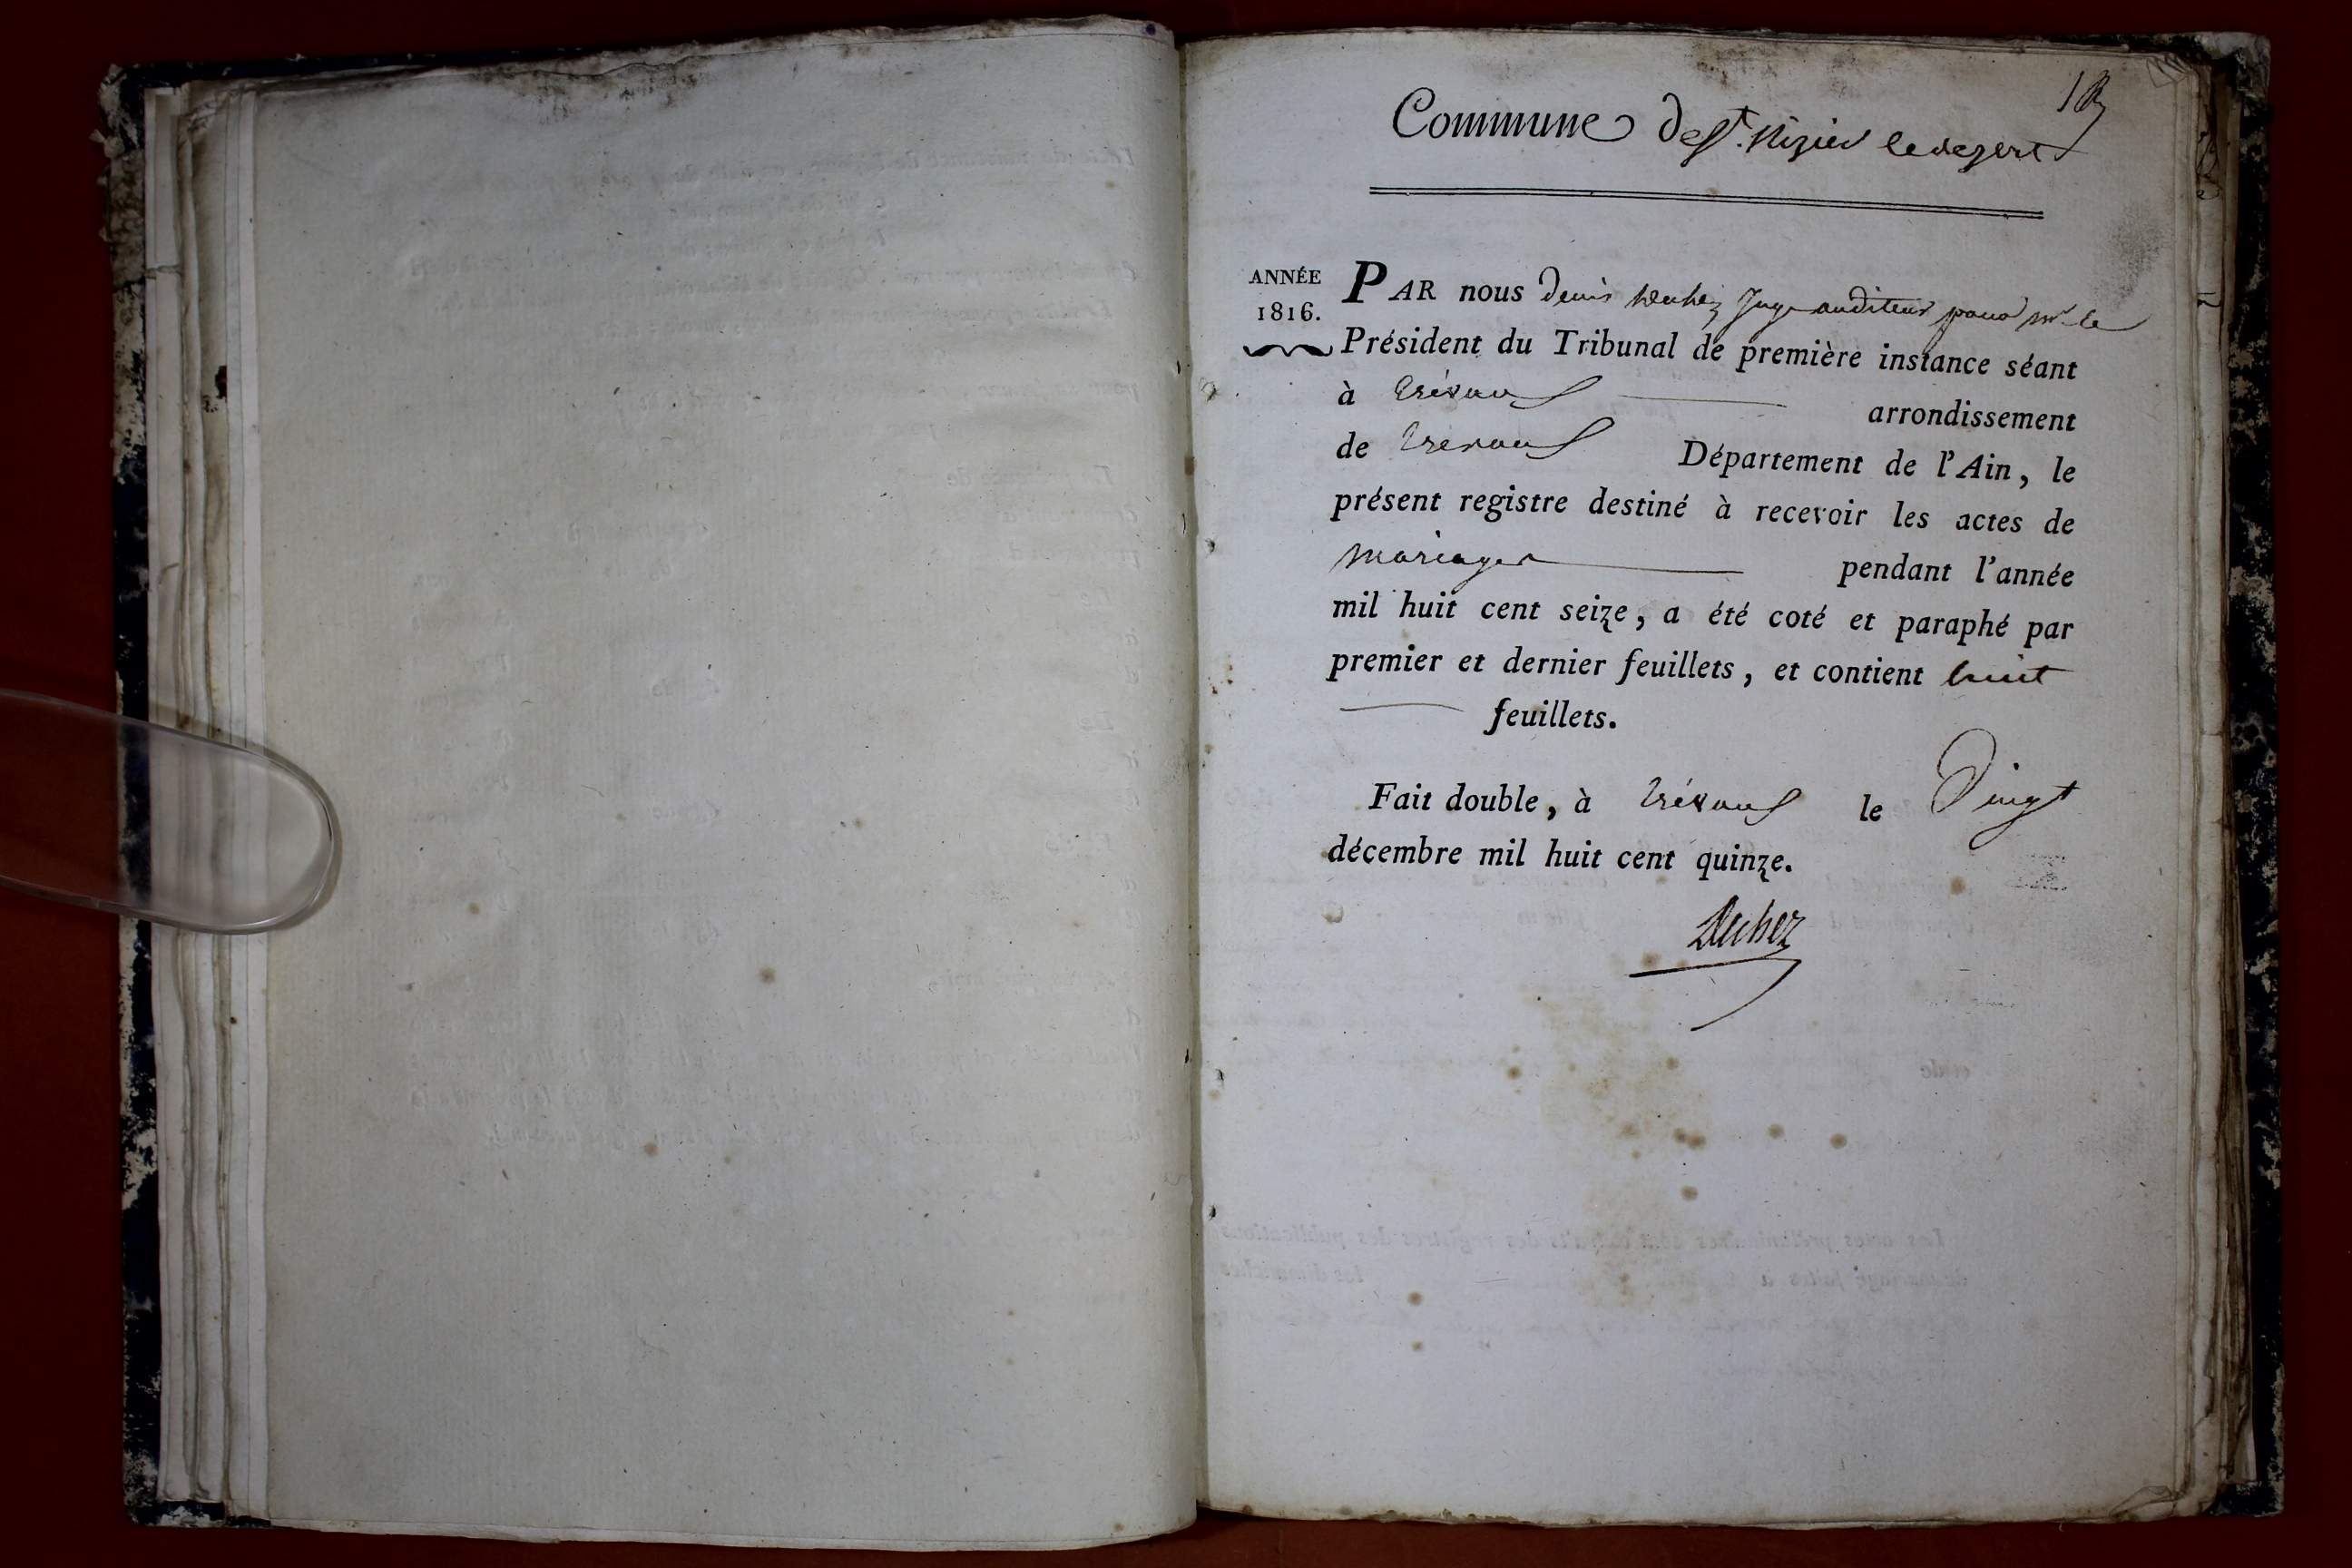 Commune de St. Nizier le dezert
ANNÉE
1816.
PAR nous denis Juge auditeur pour Mr le
Président du Tribunal de première instance séant
à Trévoux arrondissement
de Trevoux Département de l'Ain, le
présent registre destiné à recevoir les actes de
mariages pendant l'année
mil huit cent seize, a été coté et paraphé par
premier et dernier feuillets, et contient huit
feuillets.
Fait double, à Trévoux le Vingt
décembre mil huit cent quinze.